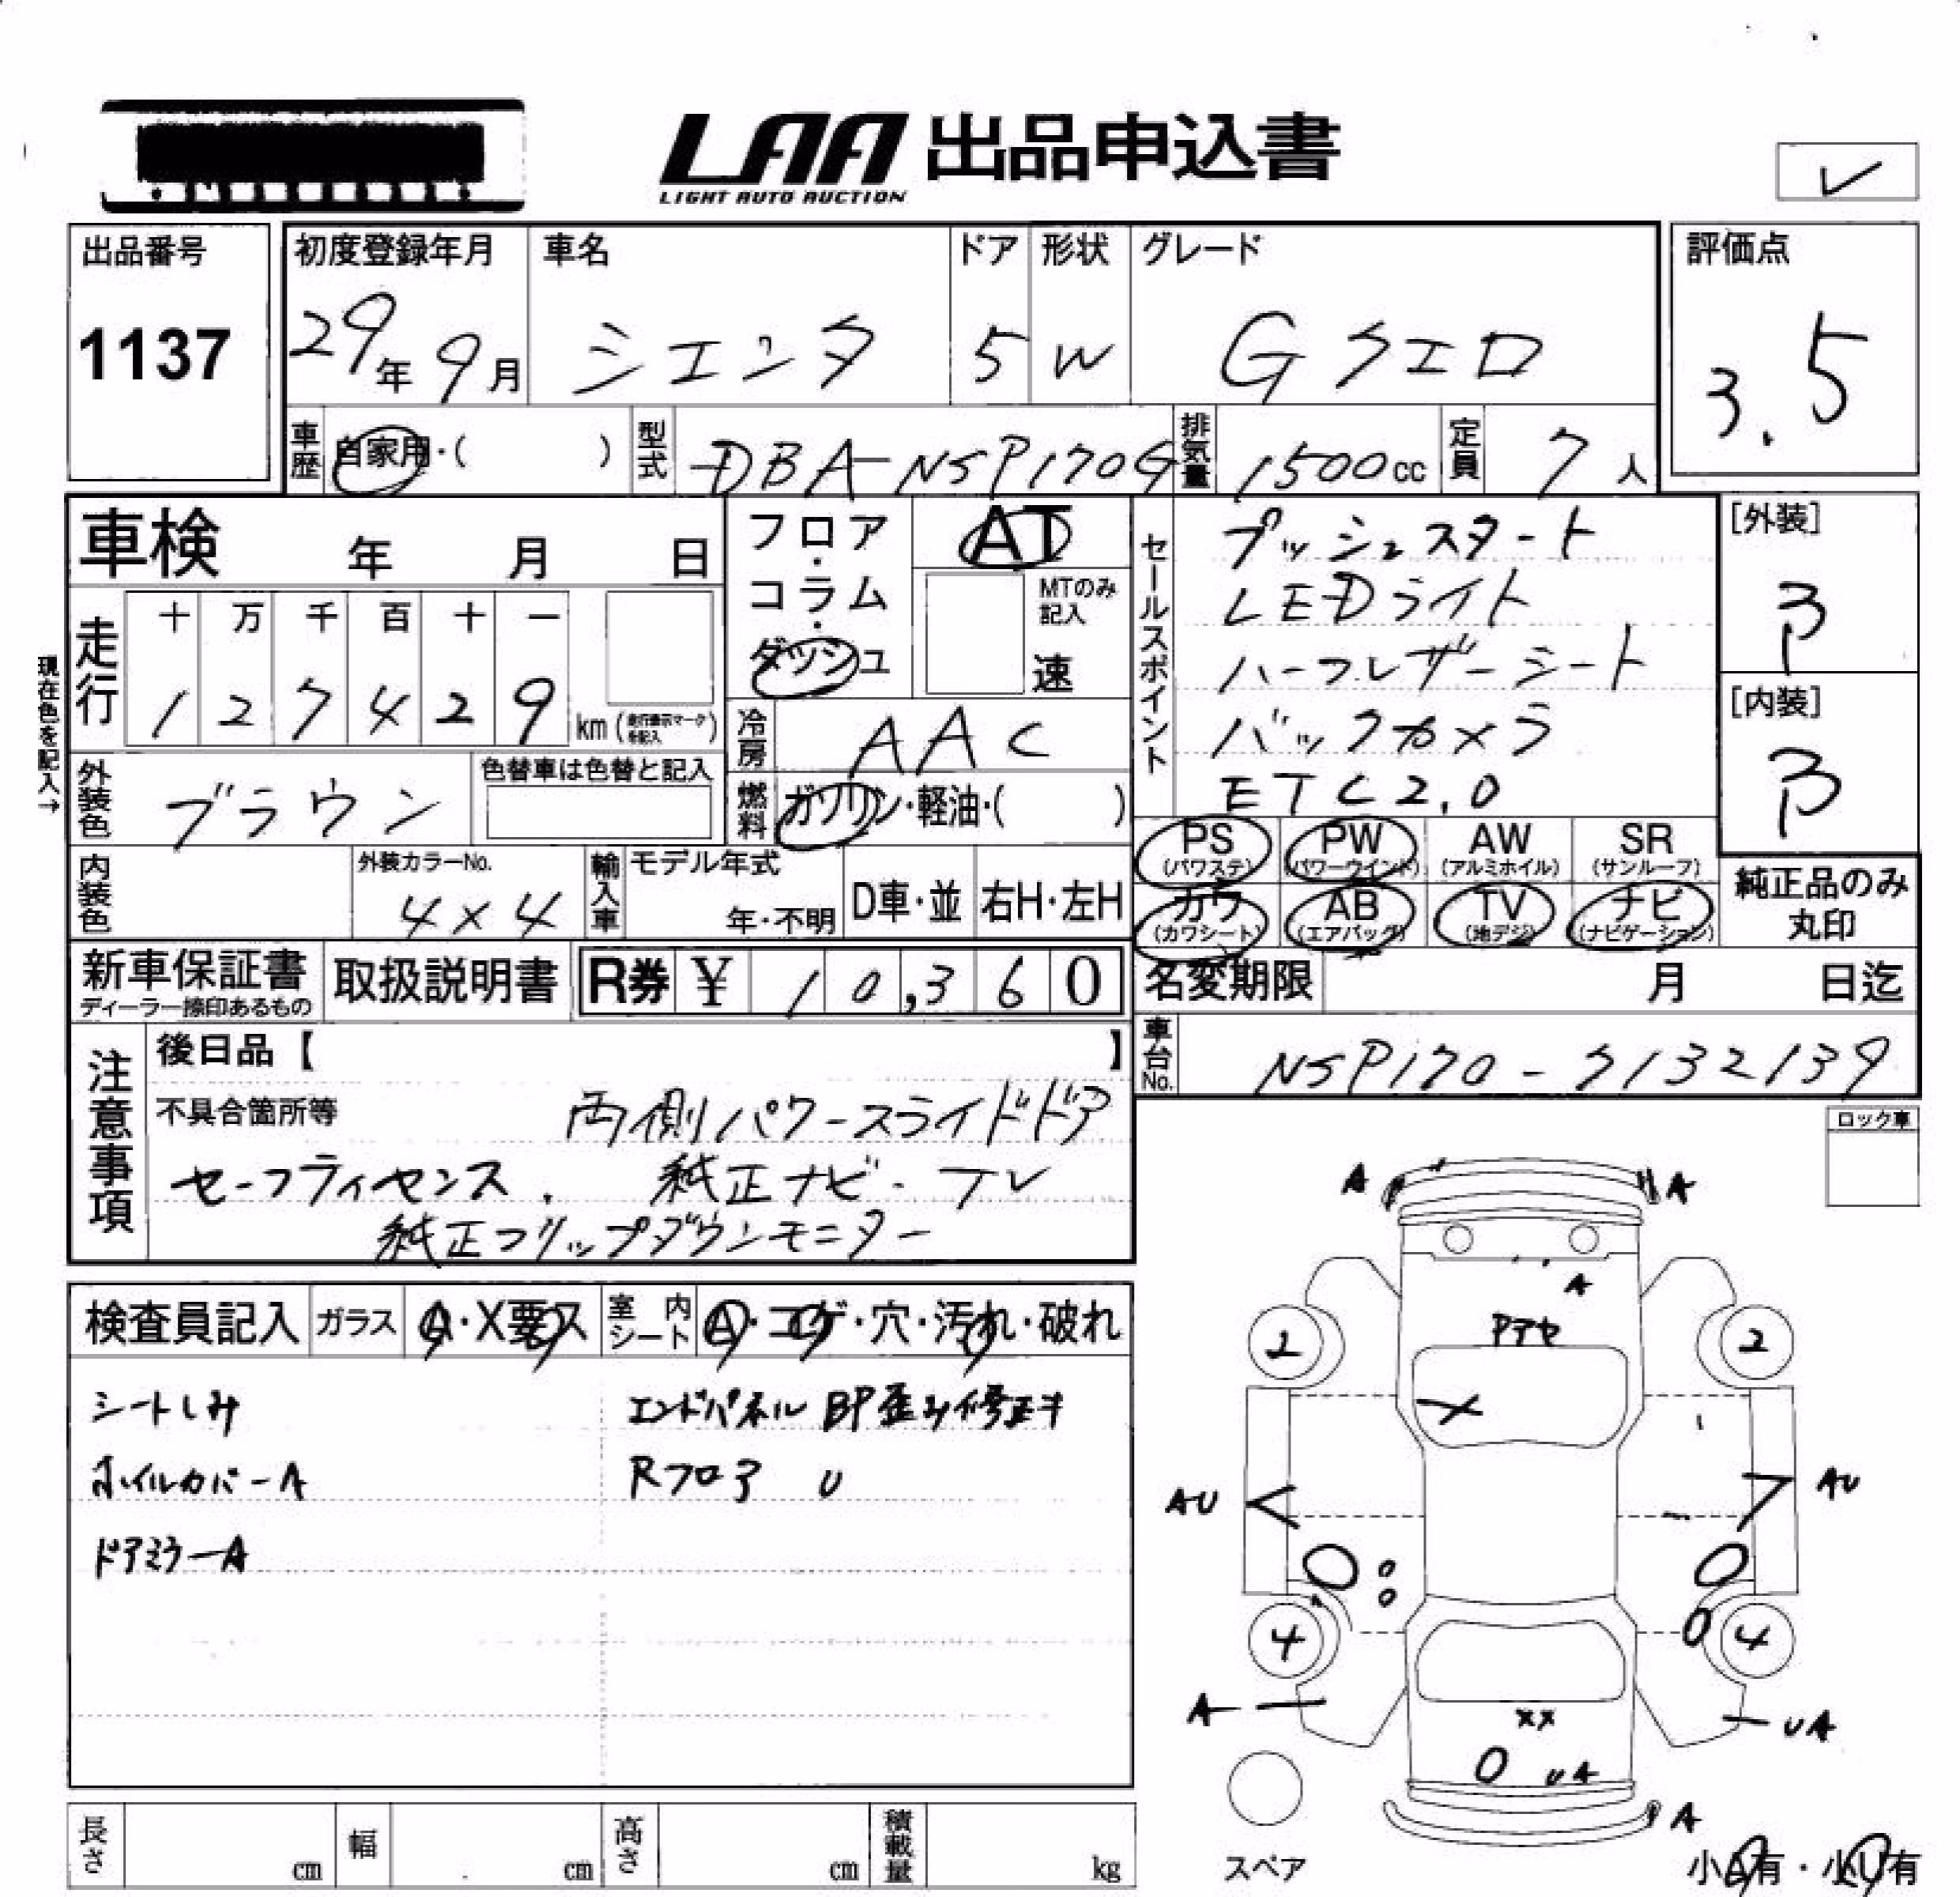 LAA 出品申込書
LIGHT AUTO AUCTION
出品番号
1137
初度登録年月
29年 9月
車名
シエンタ
ドア
5
形状
W
グレード
Gクエロ
評価点
3.5
車歴 自家用・( )
型式 DBA-NSP170G
排気量 1500cc
定員 7人
車検 年 月 日
フロア・コラム・ダッシュ
AT
MTのみ記入
速
セールスポイント
プッシュスタート
LEDライト
ハーフレザーシート
バックカメラ
ETC2.0
[外装]
[内装]
現在色を記入→
走行
十 万 千 百 十 一
1 2 7 4 2 9 km (走行表示マークを記入)
冷房 AAC
外装色 ブラウン
色替車は色替と記入
燃料 ガソリン・軽油・( )
PS (パワステ)
PW (パワーウインド)
AW (アルミホイル)
SR (サンルーフ)
カワ (カワシート)
AB (エアバッグ)
TV (地デジ)
ナビ (ナビゲーション)
純正品のみ丸印
内装色
外装カラーNo.
4×4
輸入車
モデル年式
年・不明
D車・並
右H・左H
新車保証書
ディーラー捺印あるもの
取扱説明書
R券 ¥ 10,360
名変期限 月 日迄
車台No. NSP170-7132139
注意事項
後日品【 】
不具合箇所等 両側パワースライドドア
セーフティセンス. 純正ナビ・TV
純正フリップダウンモニター
ロック車
検査員記入
ガラス A・X要ス
室内シート A・コゲ・穴・汚れ・破れ
シートしみ
ホイルカバーA
ドアミラーA
エンドパネル BP歪み修正キ
Rフロア U
A A
A
Pアセ
2 2
X
AU AU
4 4
A UA
XX
UA
A
スペア
小A有・小U有
長さ cm
幅 cm
高さ cm
積載量 kg